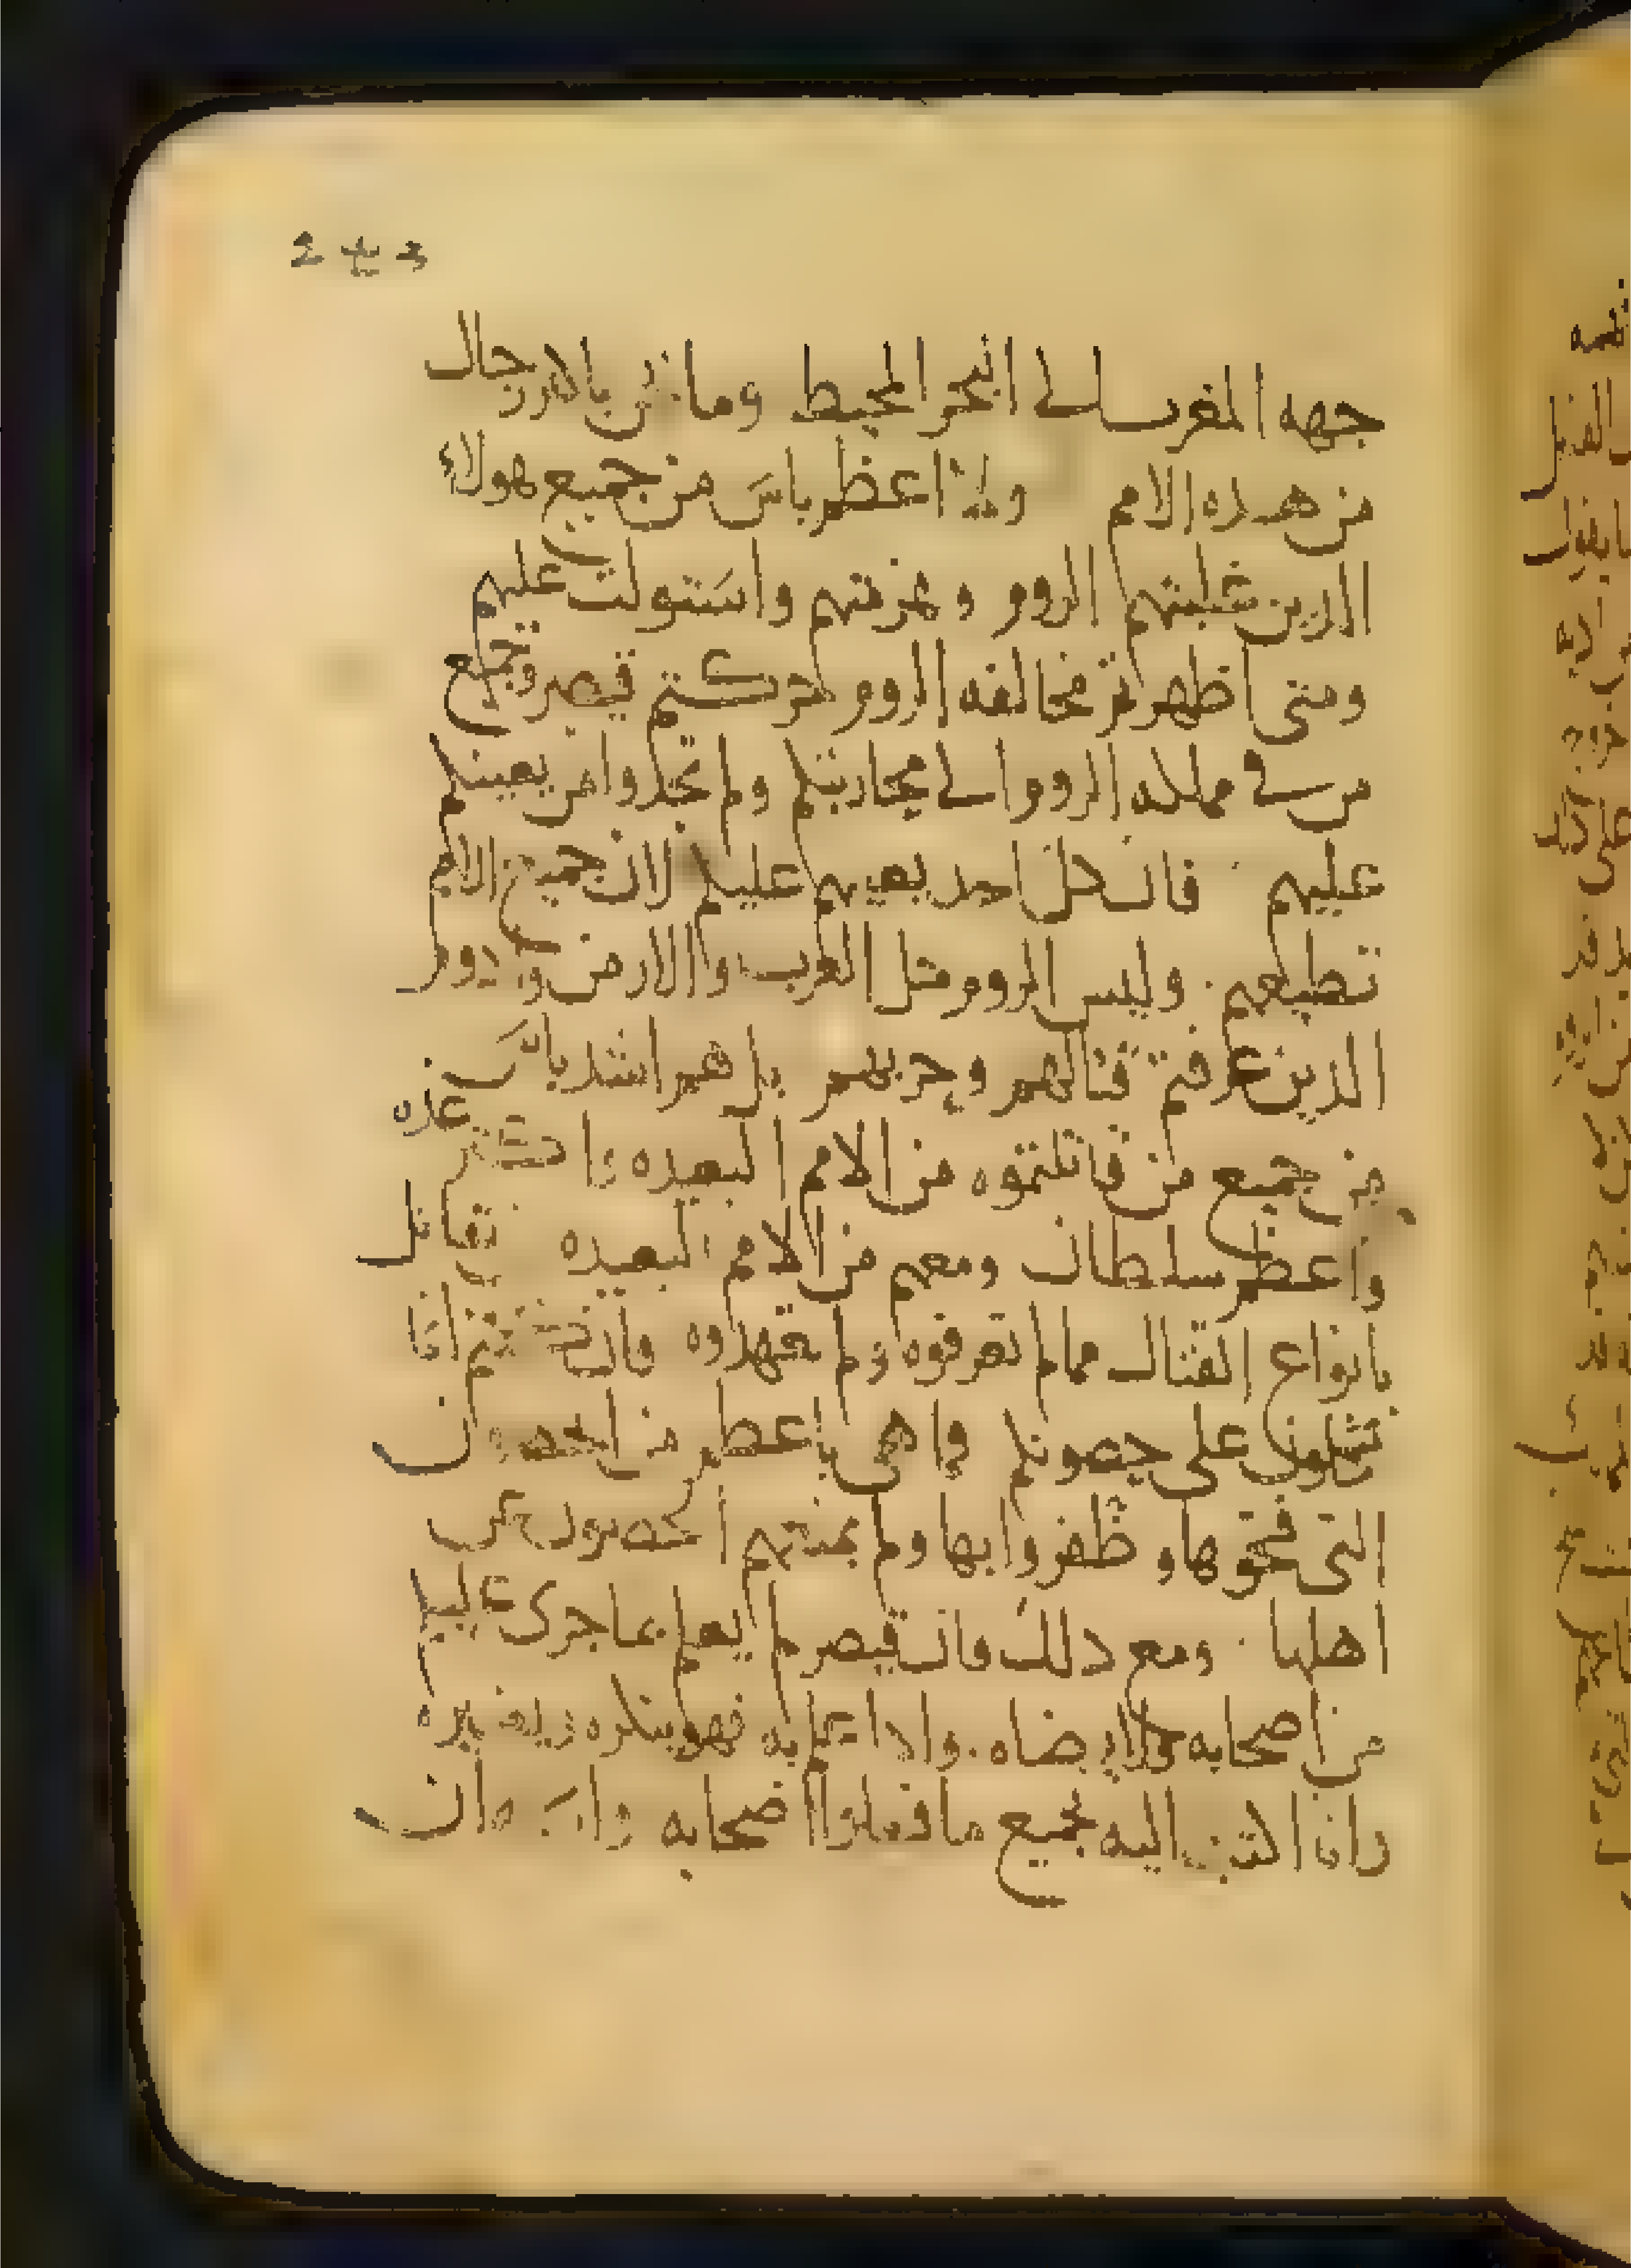 جهه المغرب الى البحر المحيط وما بالا رجال
من هده الامم ولا اعظم باس من جميع هولاء
الدين غلبتهم الروم وهزمتهم واستولت عليهم
ومتى اظهرتم مخالفه الروم حركتم قيصر وجميع
من فى مملكه الروم الى محاربتكم ولم تجدوا من يعينكم
عليهم فان كل احد يعينهم عليكم لان جميع الامم
تطيعهم. وليس الروم مثل العرب والارمن وادوم
الدين عرفتم قتالهم وحربهم بل هم اشد باس
من جميع من قاتلتموه من الامم البعيده واكثر عده
واعظم سلطان ومعهم من الامم البعيده تقاتل
بانواع القتال مما لم تعرفوه ولم تعهدوه فان كنتم انما
تتكلون على حصونكم فما هى باعظم من الحصون
التى فتحوها وظفروا بها ولم يمنعهم الحصون عن
اهلها . ومع دلك فان قيصر لم يعلم بما جرى عليكم
من اصحابه ولا يرضاه . وادا علم به فهو ينكره ويغيره
وانا اكتب اليه بجميع ما فعلوا اصحابه ان